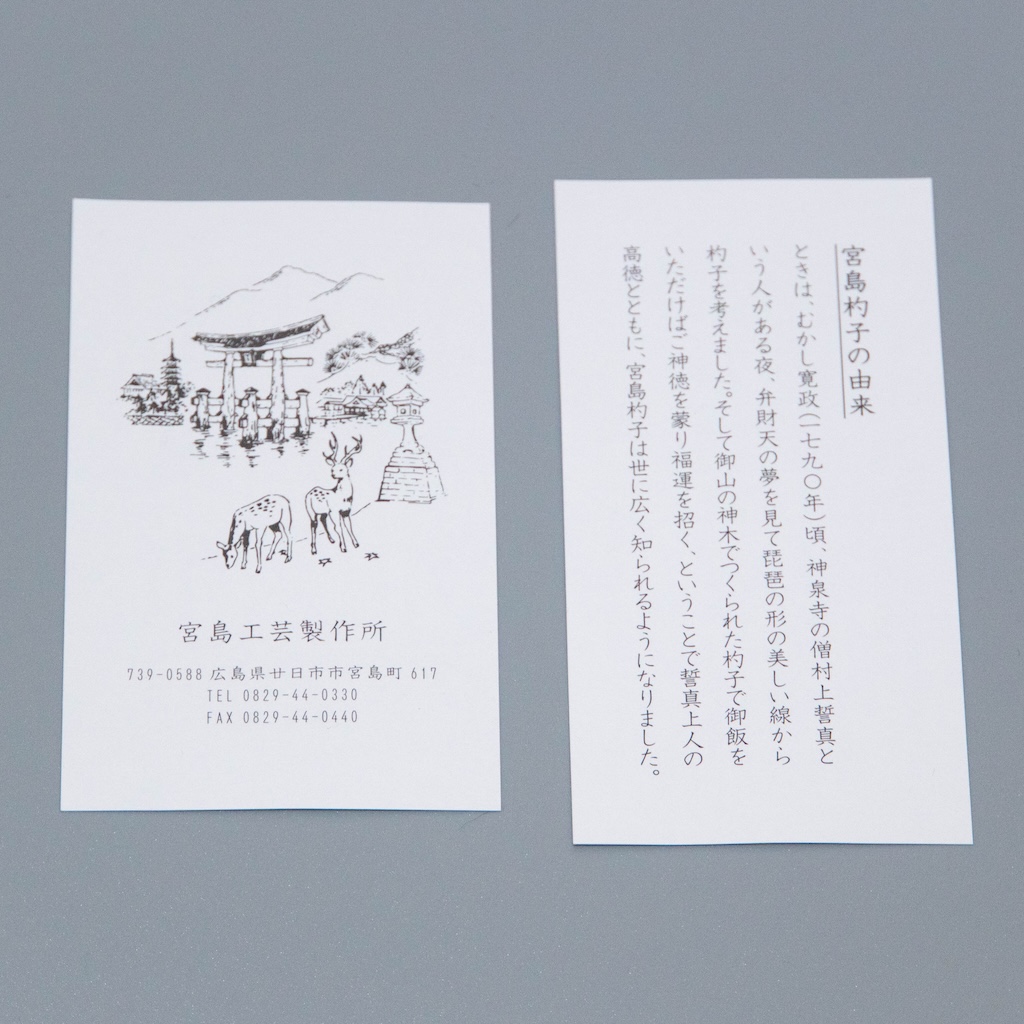 宮島工芸製作所
739-0588 広島県廿日市市宮島町 617
TEL 0829-44-0330
FAX 0829-44-0440
宮島杓子の由来
ときは、むかし寛政(一七九〇年)頃、神泉寺の僧村上誓真と
いう人がある夜、弁財天の夢を見て琵琶の形の美しい線から
杓子を考えました。そして御山の神木でつくられた杓子で御飯を
いただけばご神徳を蒙り福運を招く、ということで誓真上人の
高徳とともに、宮島杓子は世に広く知られるようになりました。